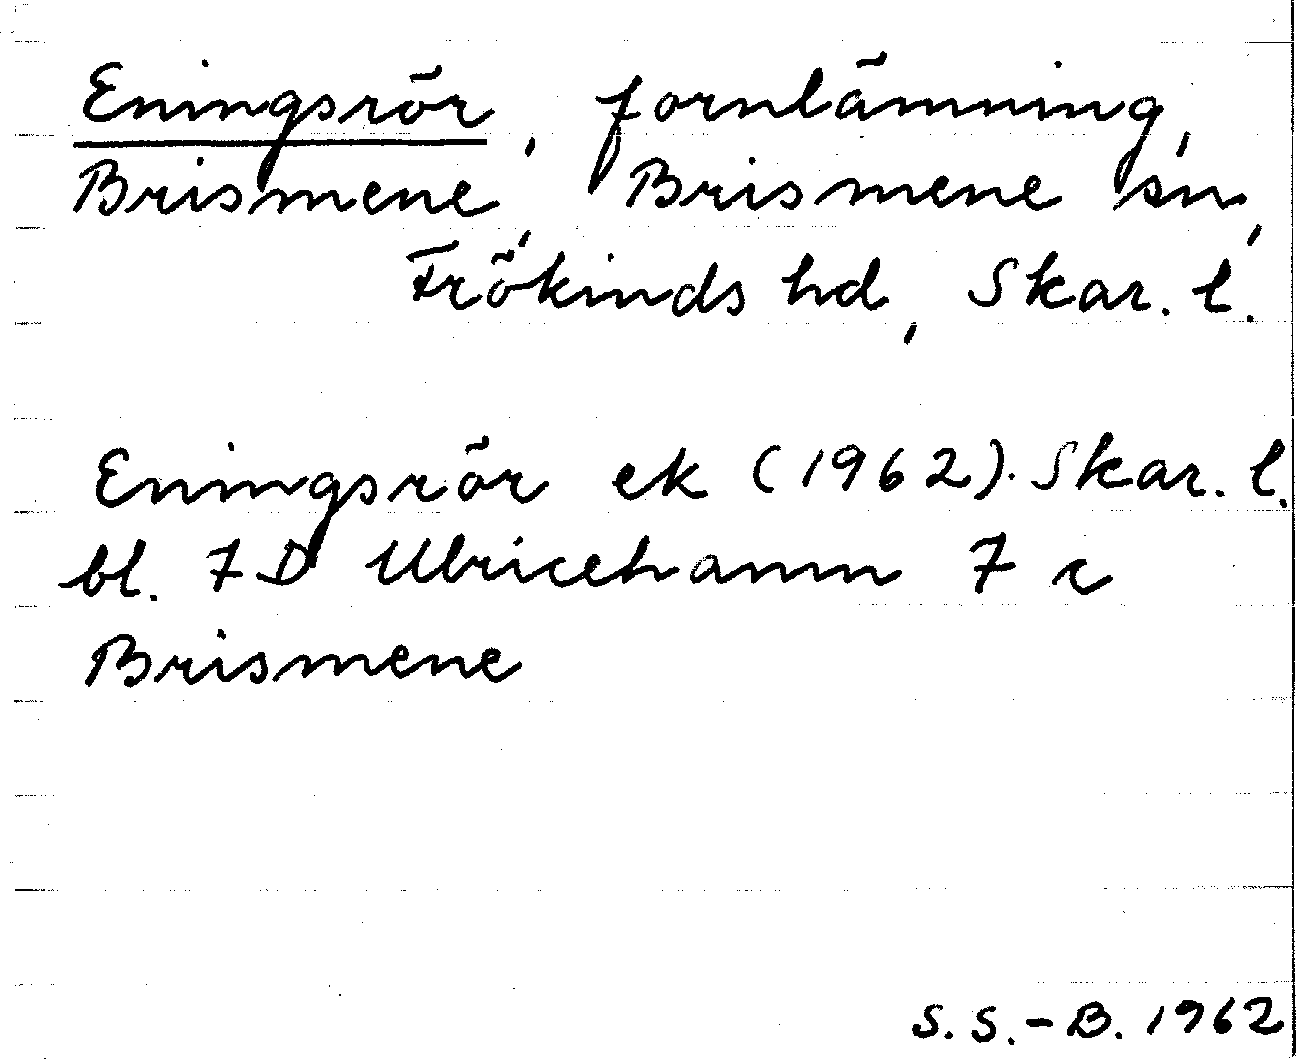 Eningsrör, fornlämning,
Brismene, Brismene sn,
Frökinds hd, Skar. l.
Eningsrör ek (1962). Skar. l.
bl. 7D Ulricehamn 7 c
Brismene
S. S.-B. 1962